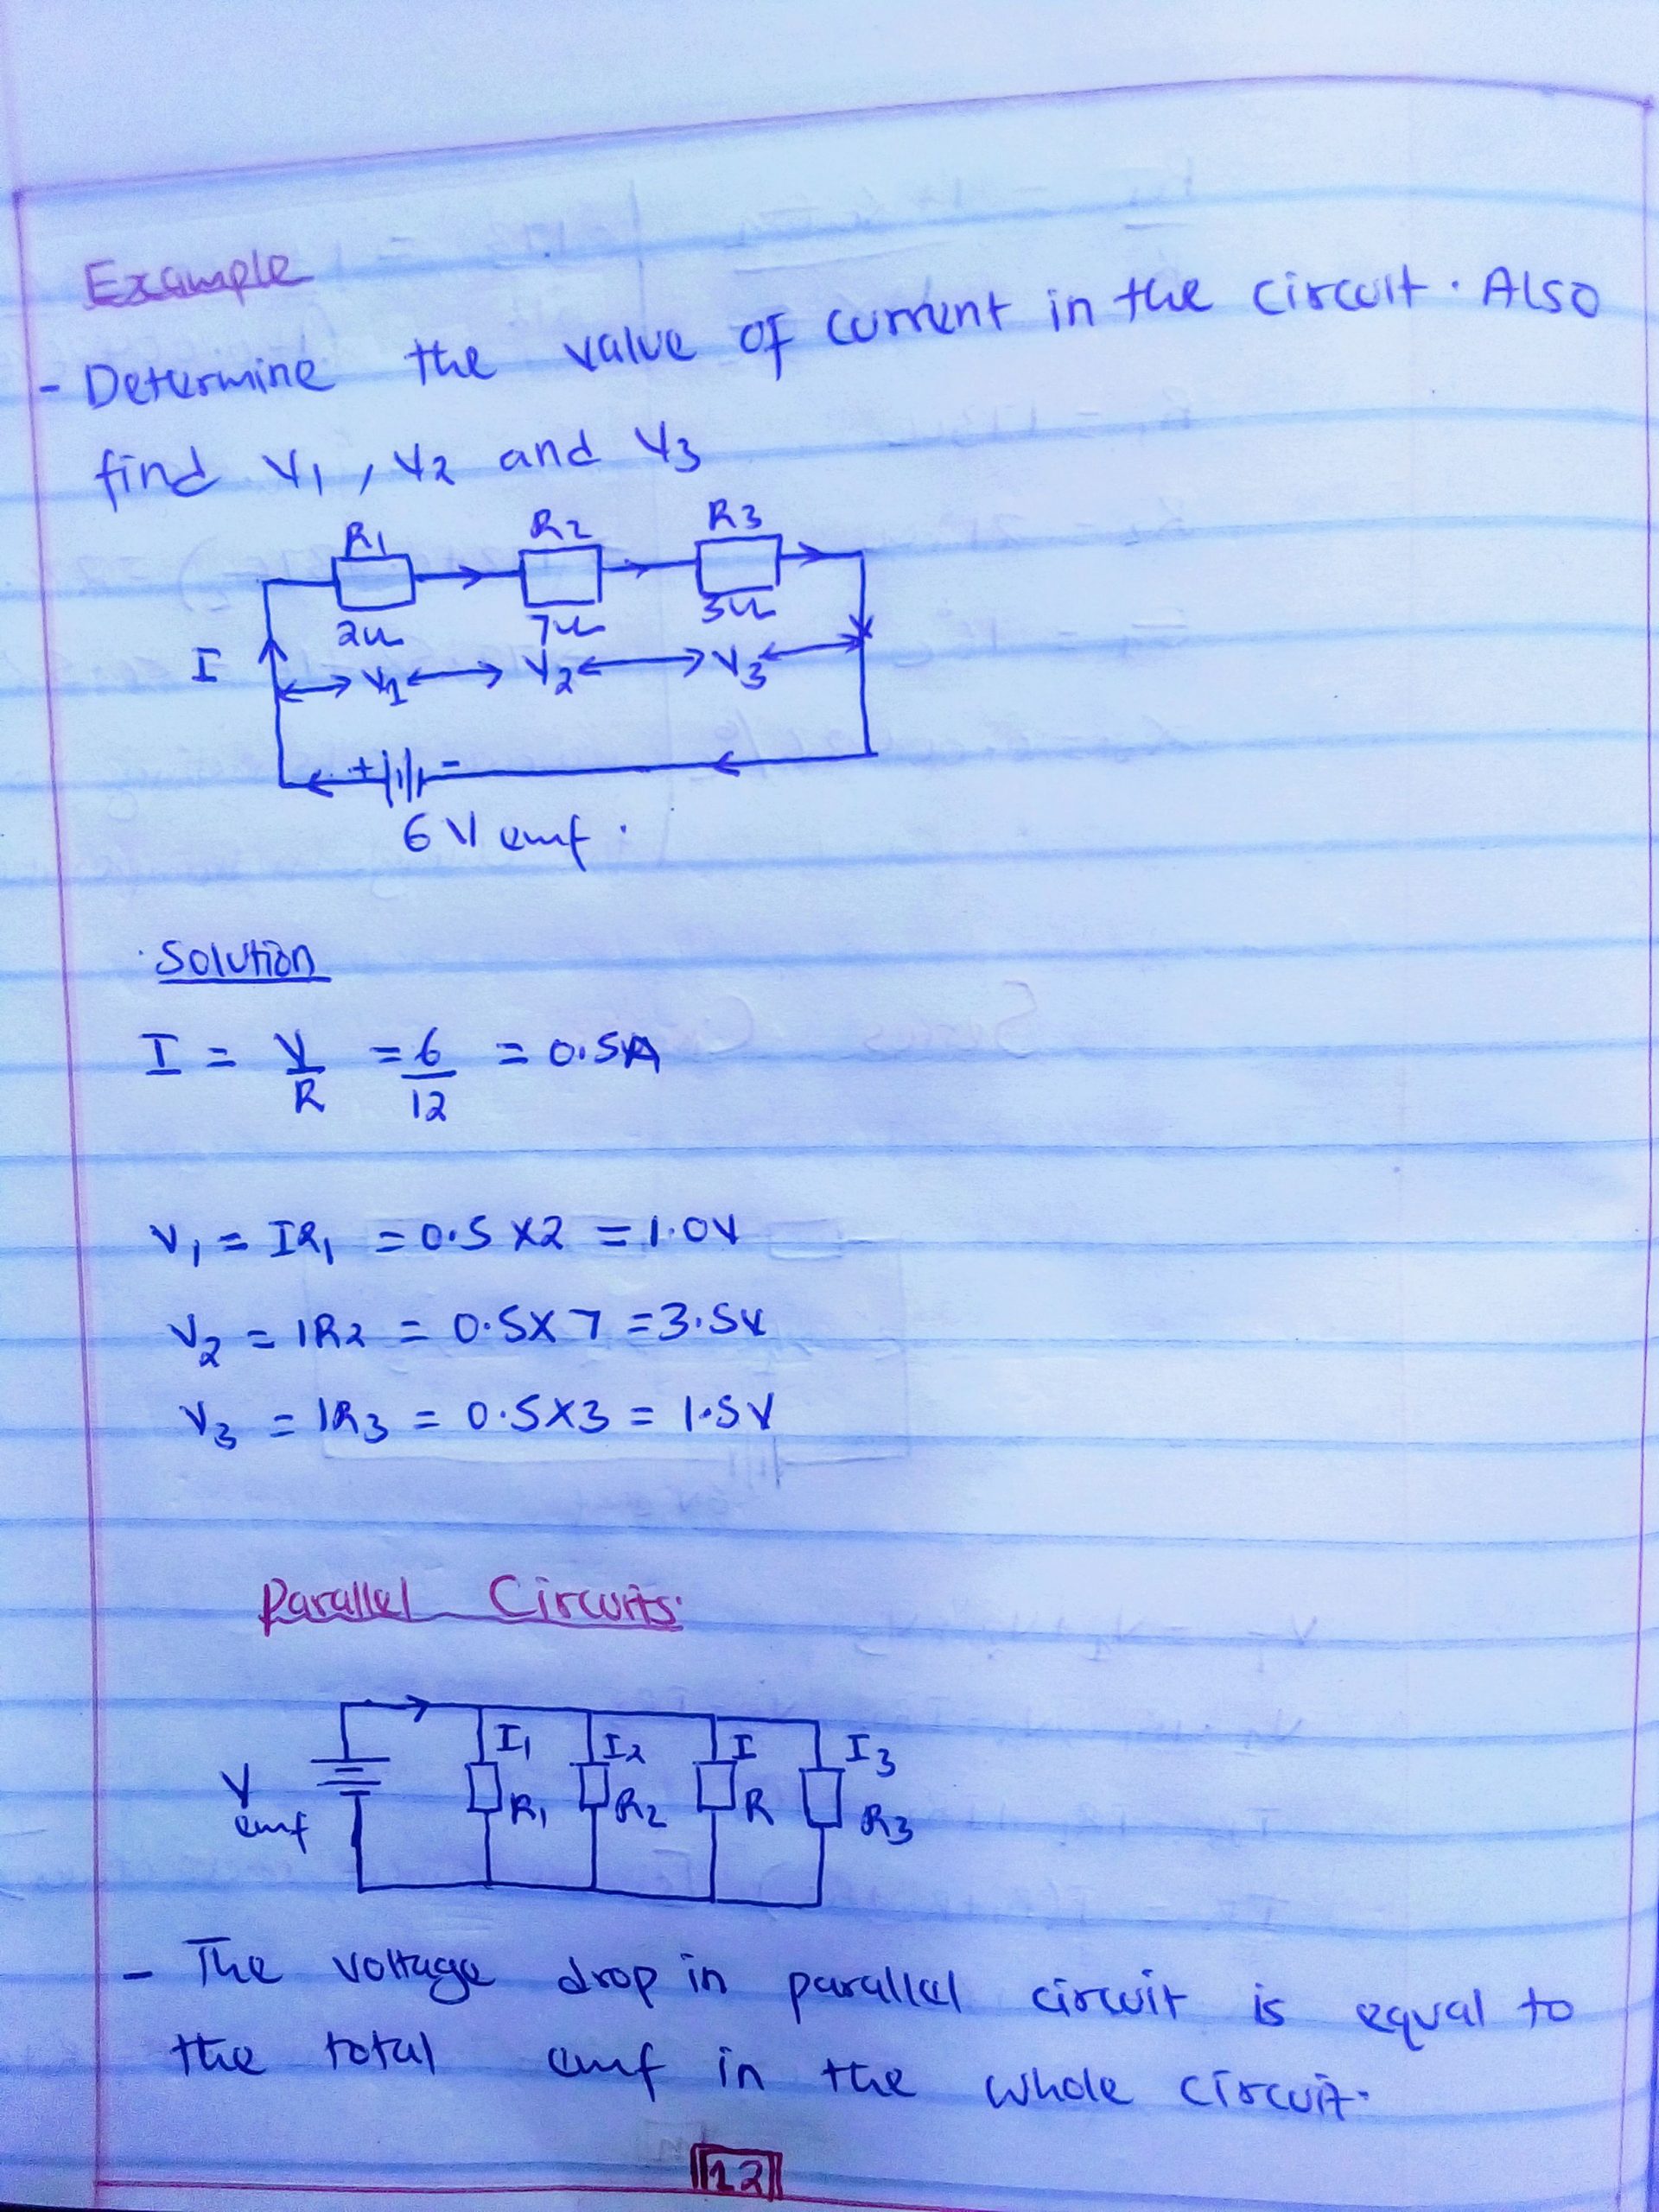 Example
- Determine the value of current in the circuit. Also
find V1, V2 and V3
R1 R2 R3
2Ω 7Ω 3Ω
I
V1 V2 V3
+ -
6V emf.
Solution
I = V/R = 6/12 = 0.5A
V1 = IR1 = 0.5 X 2 = 1.0V
V2 = IR2 = 0.5 X 7 = 3.5V
V3 = IR3 = 0.5 X 3 = 1.5V
Parallel Circuits.
I1 I2 I I3
V
emf
R1 R2 R R3
- The voltage drop in parallel circuit is equal to
the total emf in the whole circuit.
12